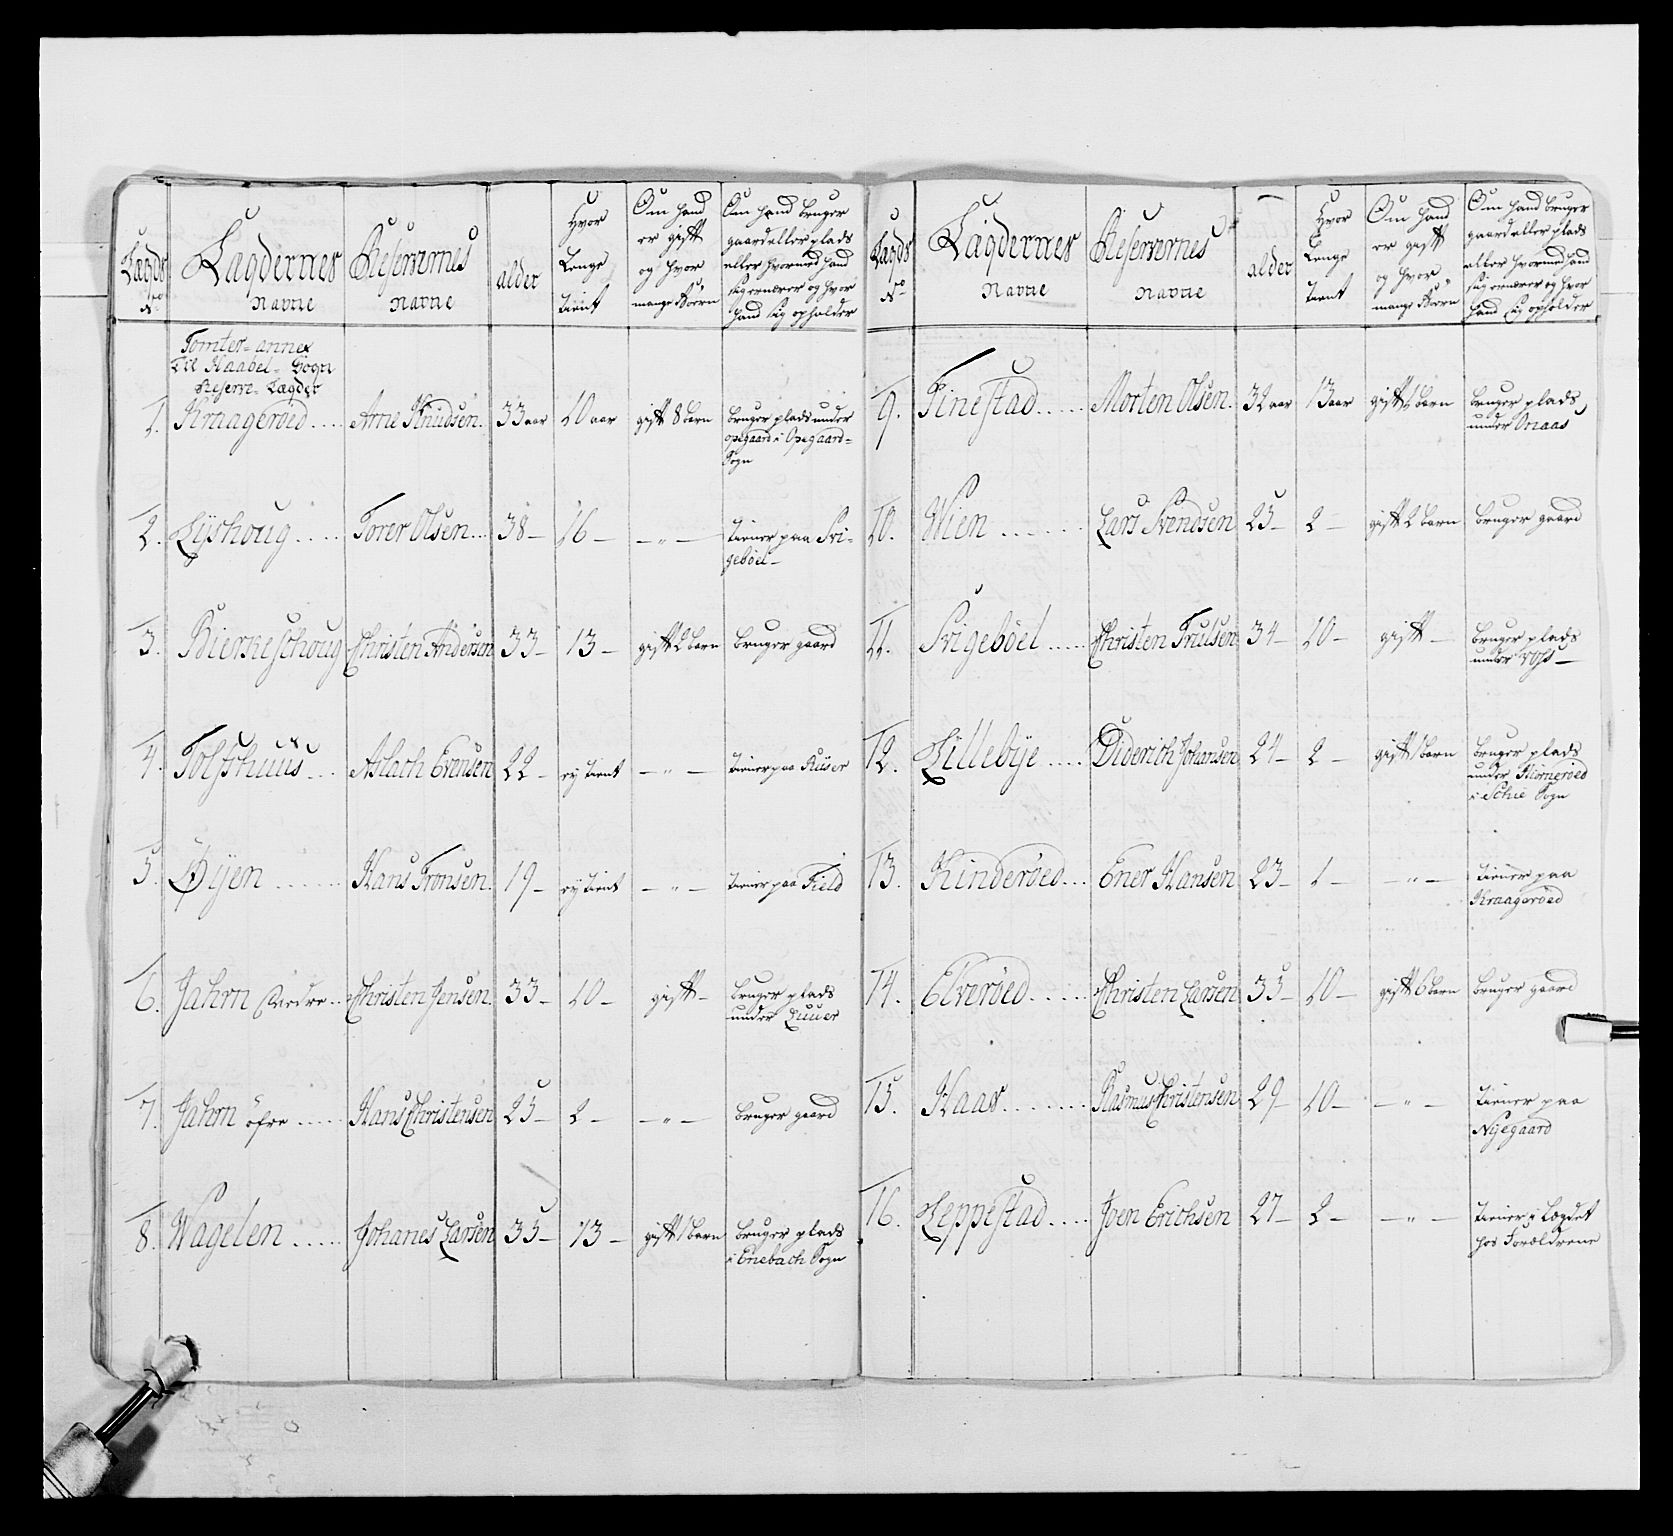 Lægds No | Lægdernes Navne | Reservernes Navne | alder | Hvor Lenge tient | Om hand er gift og hvor mange Børn | Om hand bruger gaard eller plads eller hvormed hand sig ernærer og hvor hand sig opholder
Tomter-annex
til Haabel-Sogn
Reserve-Lægder
1. Kraagerøed.... | Arne Knudsen. | 33 aar | 10 aar | gift 8 børn | bruger plads under opegaard i Opegaard-Sogn
2. Lyshoug.... | Torer Olsen... | 38 — | 16 — | — " — | tiener paa Svigebøel —
3. Bierkeschoug | Christen Andersen | 33 — | 13 — | gift 2 børn | bruger gaard
4. Tolfshuus... | Aslach Evensen | 22 — | ey tient | — " — | tiener paa Ruser
5. Øyen...... | Hans Tronsen. | 19 — | ey tient | — " — | tiener paa Field
6. Jahrn Nedre.. | Christen Jensen. | 33 — | 10 — | gift — | bruger plads under Luuer
7. Jahrn øfre..... | Hans Christensen | 25 — | 2 — | — " — | bruger gaard
8. Wagelen..... | Johanes Larsen | 35 — | 13 — | gift 1 barn | bruger plads i Enebach Sogn
Lægds No | Lægdernes Navne | Reservernes Navne | alder | Hvor Lenge tient | Om hand er gift og hvor mange Børn | Om hand bruger gaard eller plads eller hvormed hand sig ernærer og hvor hand sig opholder
9. Finestad..... | Morten Olsen. | 32 aar | 13 aar | gift børn | bruger plads under Onaas
10. Wien...... | Lars Svendsen | 25 — | 2 — | gift 2 børn | bruger gaard
11. Svigebøel..... | Christen Trulsen | 34 — | 10 — | gift — | bruger plads under —
12. Lillebye..... | Diderich Johansen | 24 — | 2 — | gift 1 barn | bruger plads under Biørnerøed i Schie Sogn
13. Kinderøed... | Ener Hansen | 23 — | 1 — | — " — | tiener paa Kraagerøed
14. Elverøed..... | Christen Larsen | 35 — | 10 — | gift 6 børn | bruger gaard
15. Haas........ | Rasmus Christensen | 29 — | 10 — | — " — | tiener paa Nyegaard
16. Leppestad.... | Joen Erichsen | 27 — | 2 — | — " — | tiener i Lægdet hos Forældrene